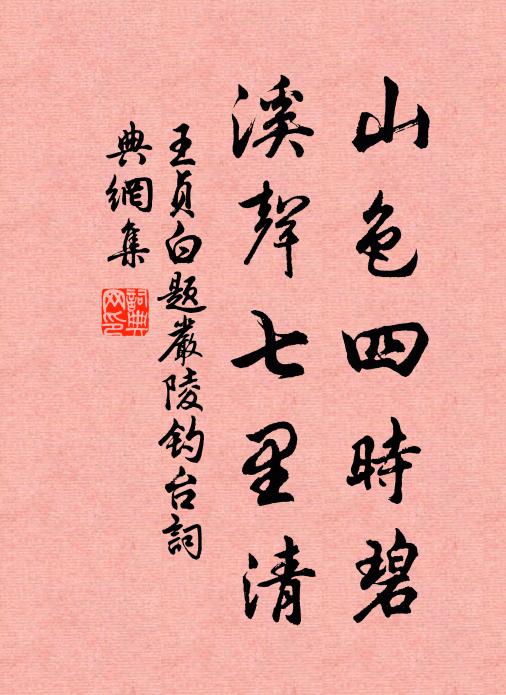 山色四時碧
溪聲七里清
王貞白題嚴陵釣台詞
典網集
詞典
网印